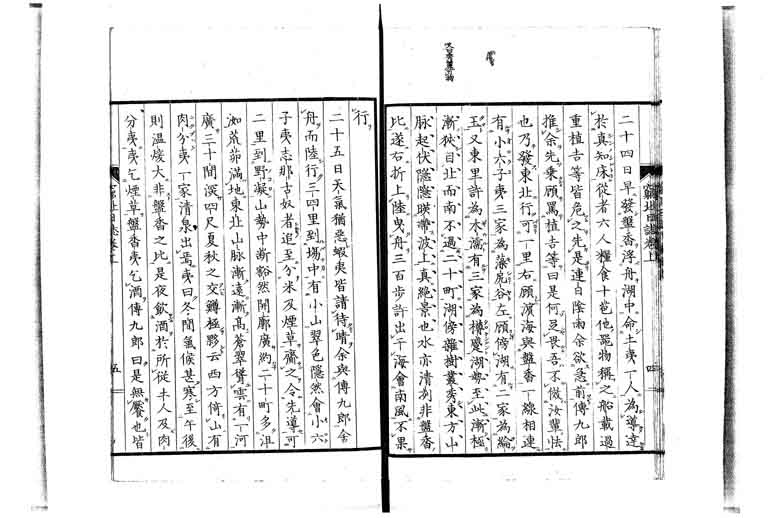 二十四日早發盤香浮舟湖中命土夷一人為導達
於真知床從者六人糧食十苞他器物稱之船載過
重植吉等皆危之先是連日陰雨余欲急前傳九郎
推余先乘顧罵植吉等曰是何足畏吾不俶汝輩怯
也乃發東北行可一里右顧濱海與盤香一線相連
有小六子夷三家為蕩鹿谷左顧傍湖有二家為綸
玉又東里許為木瀛有三家為樺慶湖勢至此漸極
漸狹自北而南不過二十町湖傍雜樹叢秀東方山
脉起伏隱隱映帶波上真絶景也水亦清冽非盤香
比遂右折上陸曳舟三百步許出于海會南風不果
行
二十五日天氣猶惡蝦夷皆請待晴余與傳九郎舍
舟而陸行三四里到塲中有小山翠色隱然會小六
子夷志那古奴者追至分米及煙草齎之令先導可
二里到野凝山勢中斷豁然開廓廣約二十町多沮
洳荒茆滿地東北山脉漸遠漸高蒼翠聳雲有一河
廣三十間深四尺夏秋之交鱒極夥云西方倚山有
肉分夷一家清泉出焉夷曰冬間氣候甚寒至午後
則温煖大非盤香之比是夜飲酒於所從土人及肉
分夷夷乞煙草盤香夷乞酒傳九郎曰是無饜也皆
窮北日誌卷上
四
五